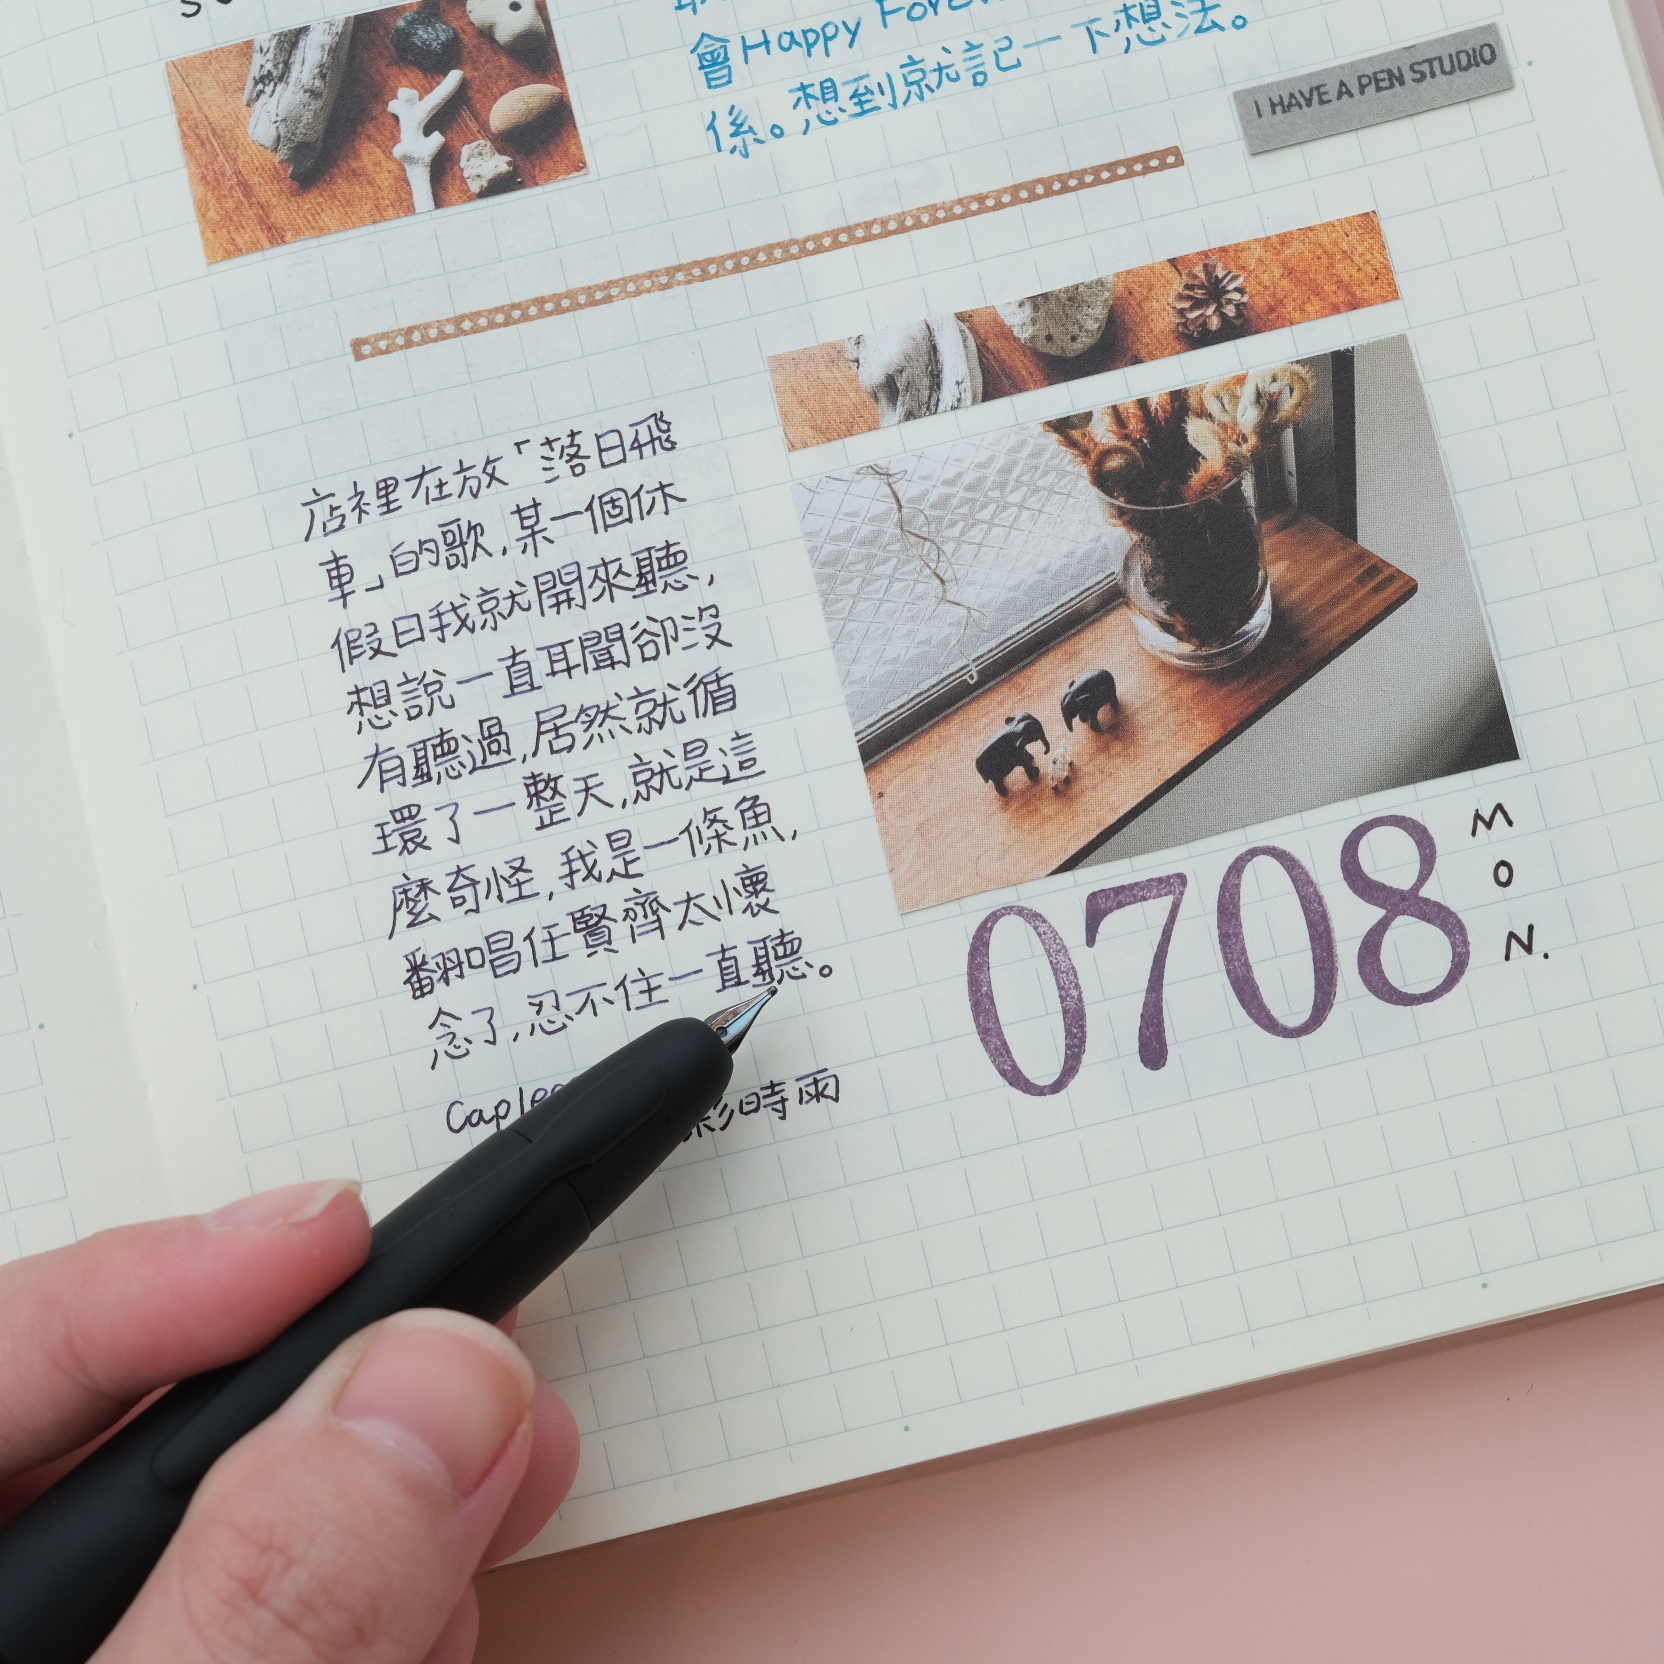 會Happy
係。想到就記一下想法。
I HAVE A PEN STUDIO
店裡在放「落日飛
車」的歌,某一個休
假日我就開來聽,
想說一直耳聞卻沒
有聽過,居然就循
環了一整天,就是這
麼奇怪,我是一條魚,
翻唱任賢齊太懷
念了,忍不住一直聽。
時雨
0708
MON.